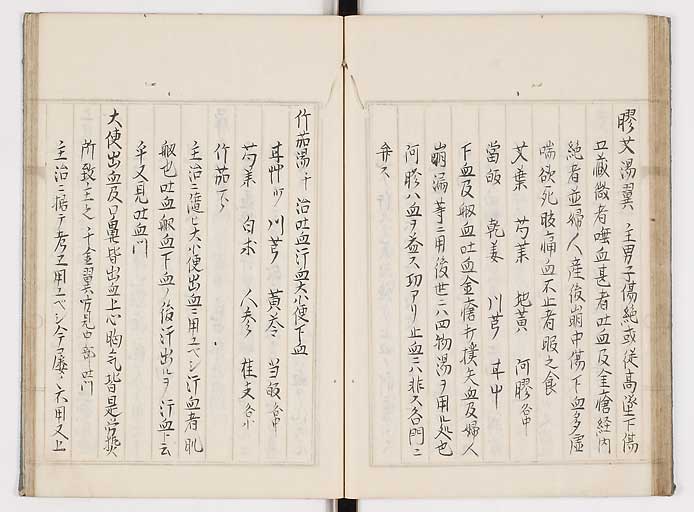 膠艾湯翼 主男子傷絶或従高墜下傷
五蔵微者唾血甚者吐血及金瘡経内
絶者並婦人産後崩中傷下血多虚
喘欲死腹痛血不止者服之食
艾葉 芍薬 地黄 阿膠各中
當皈 乾姜 川芎 甘中
下血及衂血吐血金瘡打撲失血及婦人
崩漏等ニ用後世ニハ四物湯ヲ用ル処也
阿膠ハ血ヲ益ス功アリ止血ニハ非ス各門ニ
弁ス
竹茹湯千 治吐血汗血大小便下血
甘竹少 川芎 黄芩 当皈各中
芍薬 白朮 人参 桂支各小
竹茹下
主治ニ大小便出血ニ用ユベシ汗血者肌
衂也吐血衂血下血ノ後汗出ルヲ汗血ト云
手又見吐血門
大便出血及口鼻皆出血上心胸気皆是労損
所致主之千金翼方見吐門
主治ニ据テ考エ用ユベシ今屡々不用又上